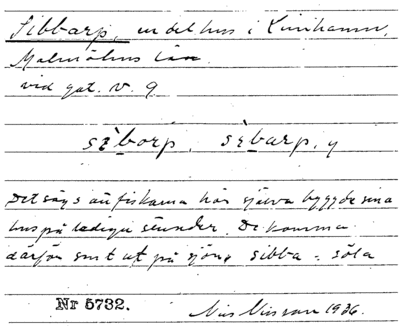 Sibbarp, en del hus i Limhamn,
Malmöhus län
vid gat. v. 9
sèborp, sèbarp, y
Det sägs att fiskarna här själva byggde sina
hus på lediga stunder. De komma
därför sent ut på sjön, sibba = söla
Nr 5732. Nils Nilsson 1936.